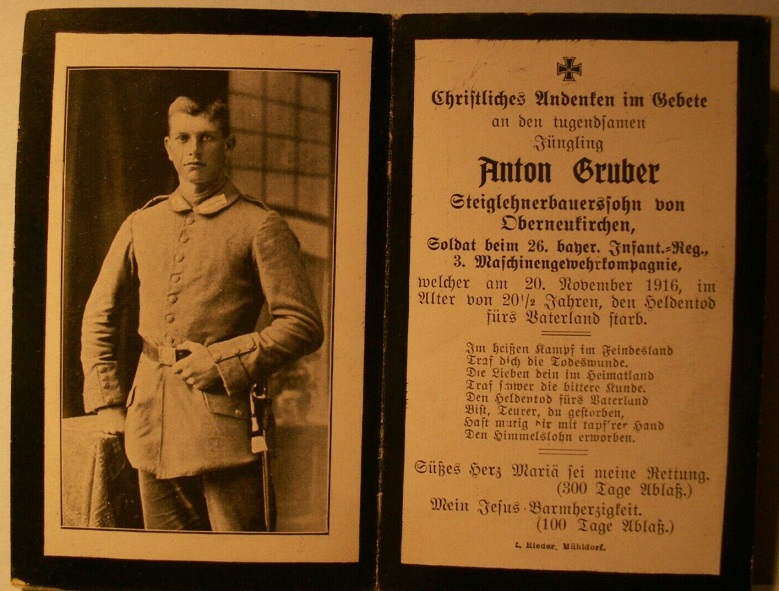 Christliches Andenken im Gebete
an den tugendsamen
Jüngling
Anton Gruber
Steiglehnerbauerssohn von
Oberneukirchen,
Soldat beim 26. bayer. Infant.-Reg.,
3. Maschinengewehrkompagnie,
welcher am 20. November 1916, im
Alter von 20½ Jahren, den Heldentod
fürs Vaterland starb.
Im heißen Kampf im Feindesland
Traf dich die Todeswunde.
Die Lieben dein im Heimatland
Traf schwer die bittere Kunde.
Den Heldentod fürs Vaterland
Bist, Teurer, du gestorben,
Hast mutig dir mit tapf'rer Hand
Den Himmelslohn erworben.
Süßes Herz Mariä sei meine Rettung.
(300 Tage Ablaß.)
Mein Jesus Barmherzigkeit.
(100 Tage Ablaß.)
L. Rieder, Mühldorf.